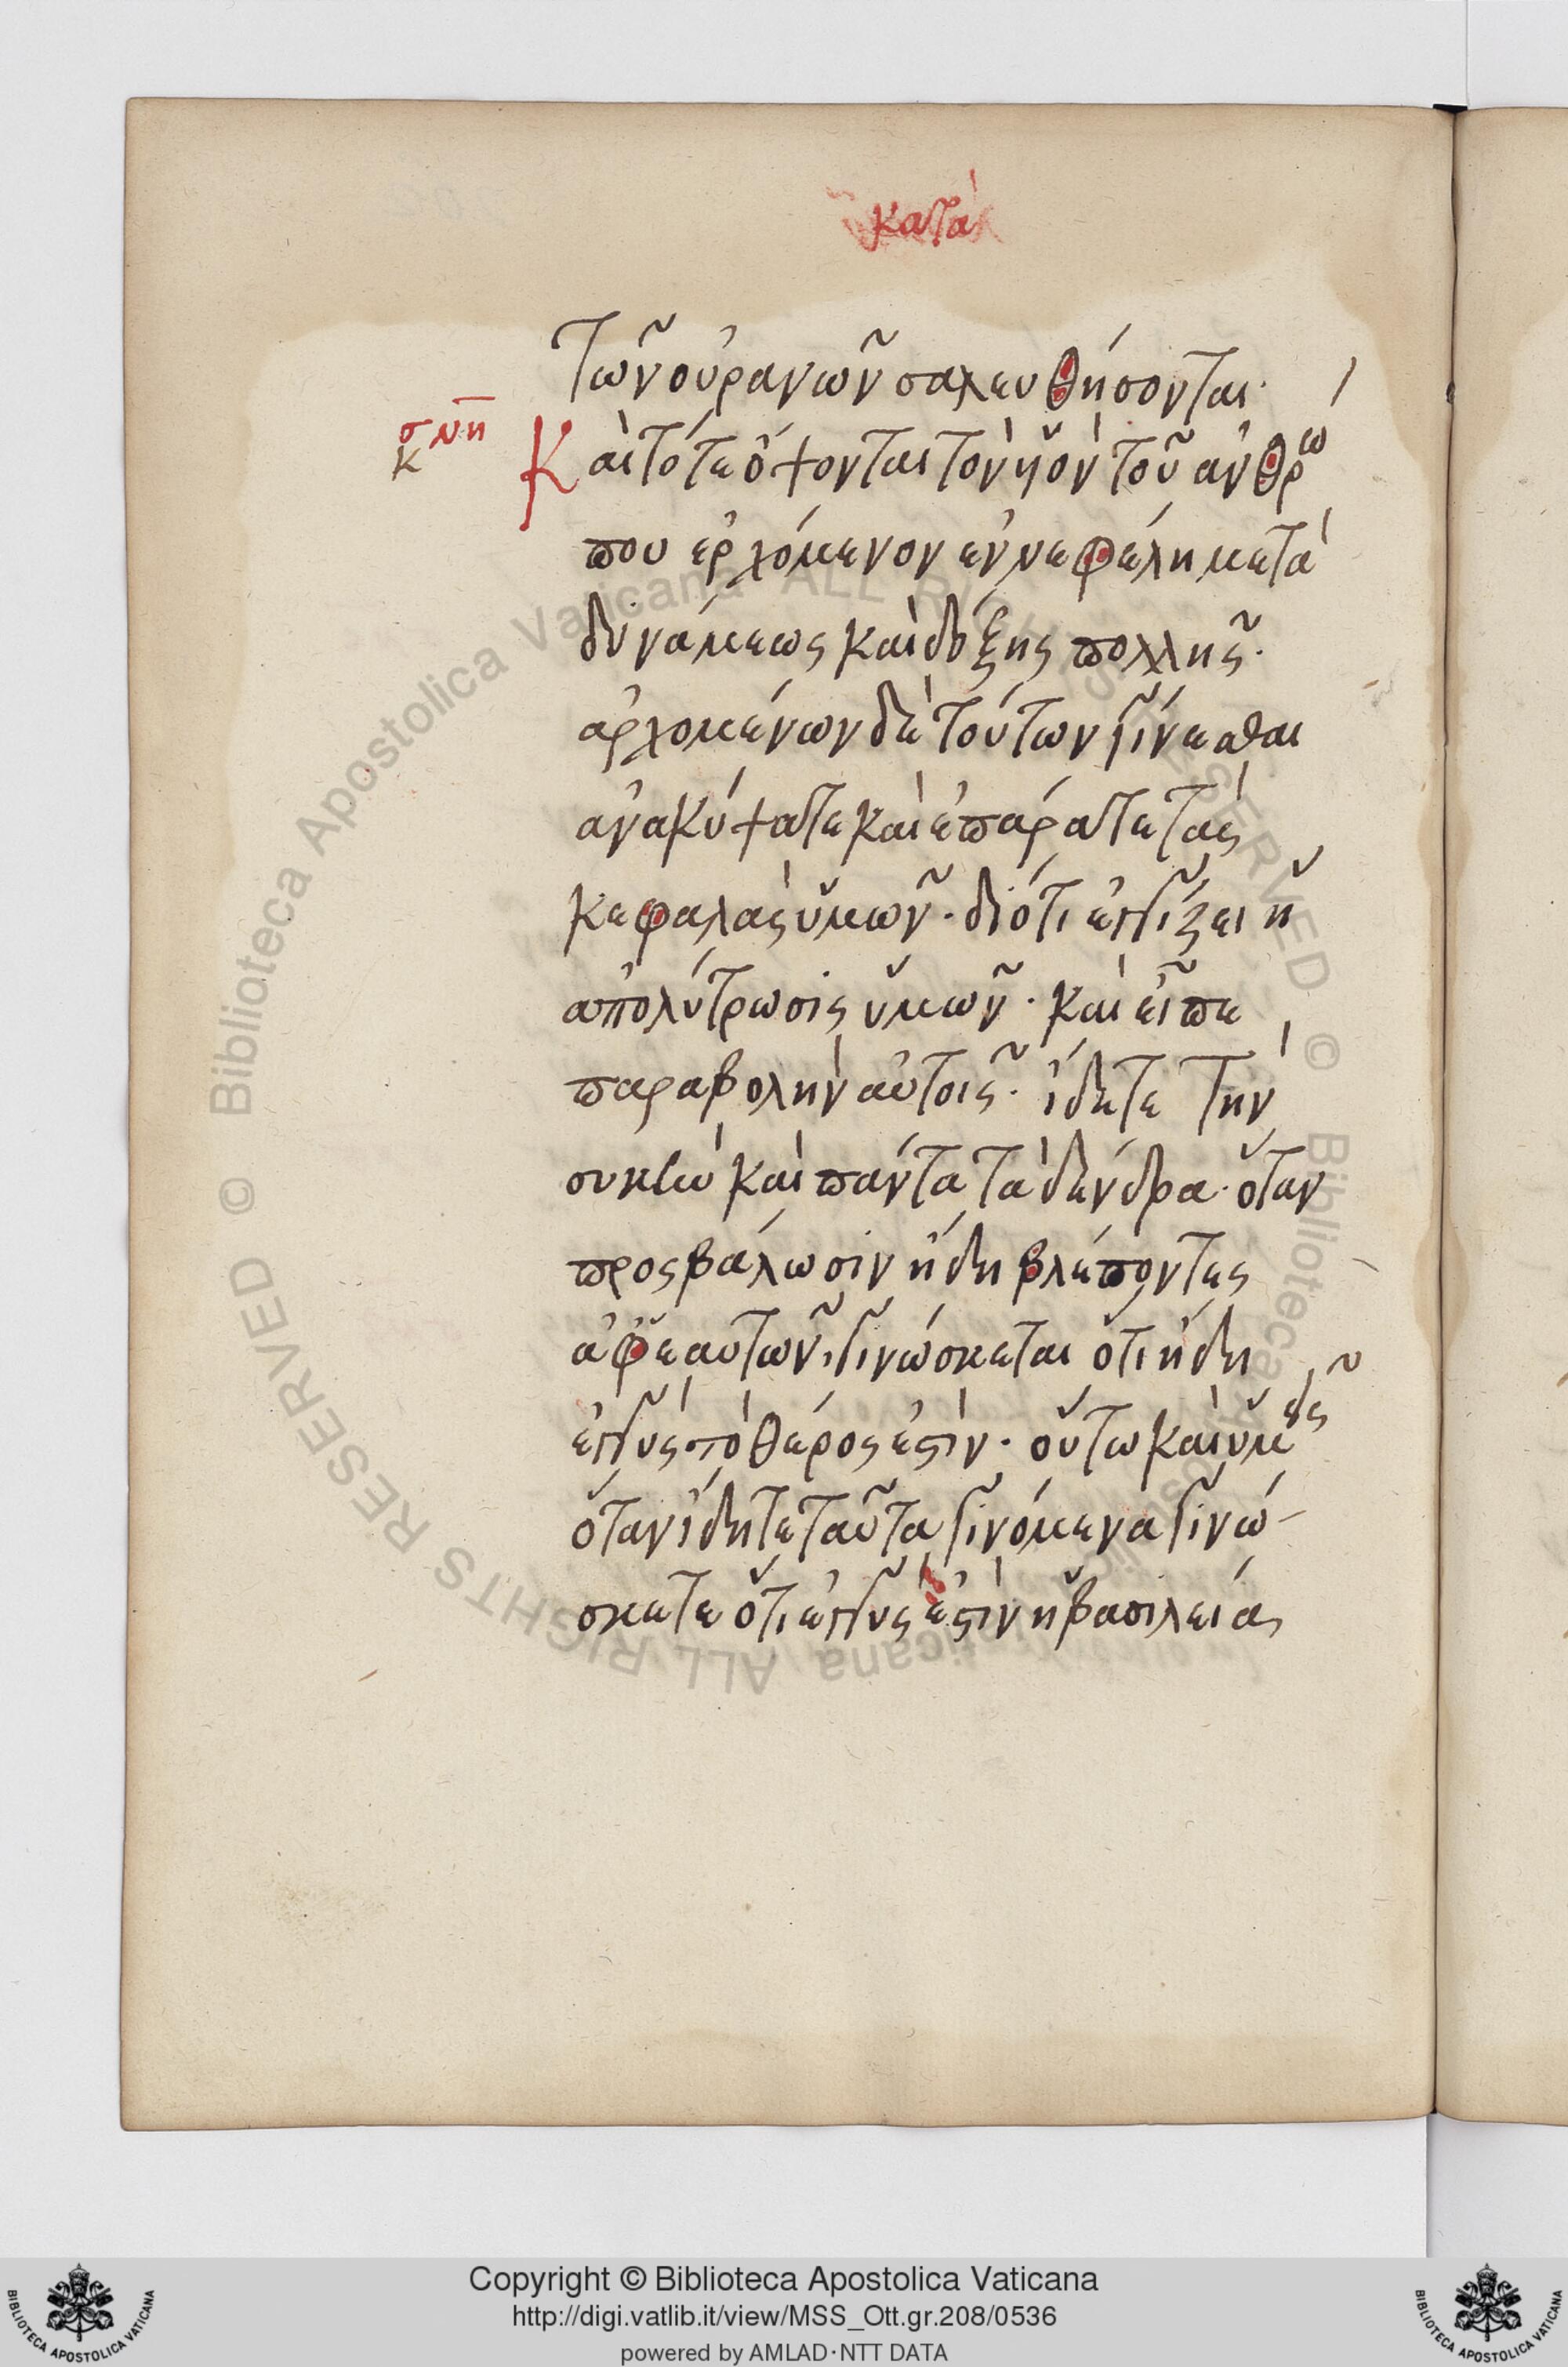 κατὰ
τῶν οὐρανῶν σαλευθήσονται·
σνη
κ
Καὶ τότε ὄψονται τὸν ὑὸν τοῦ ἀνθρώ
που ἐρχόμενον ἐν νεφέλη μετὰ
δυνάμεως καὶ δόξης πολλῆς·
ἀρχομένων δὲ τούτων γίνεσθαι
ἀνακύψατε καὶ ἐπάρατε τὰς
κεφαλὰς ὑμῶν· διότι ἐγγίζει ἡ
ἀπολύτρωσις ὑμῶν· καὶ εἶπε
παραβολὴν αὐτοῖς· ἴδετε τὴν
συκῆν καὶ πάντα τὰ δένδρα· ὅταν
προσβάλωσιν ἤδη βλέποντες
ἀφ' ἑαυτῶν, γινώσκεται ὅτι ἤδη
ἐγγὺς τὸ θέρος ἐστὶν· οὕτω καὶ ὑμεῖς
ὅταν ἴδητε ταῦτα γινόμενα γινώ
σκετε ὅτι ἐγγύς ἐστὶν ἡ βασιλείας
Copyright © Biblioteca Apostolica Vaticana
http://digi.vatlib.it/view/MSS_Ott.gr.208/0536
powered by AMLAD·NTT DATA
© Biblioteca Apostolica Vaticana ALL RIGHTS RESERVED © Biblioteca Apostolica Vaticana ALL RIGHTS RESERVED
BIBLIOTECA APOSTOLICA VATICANA
BIBLIOTECA APOSTOLICA VATICANA